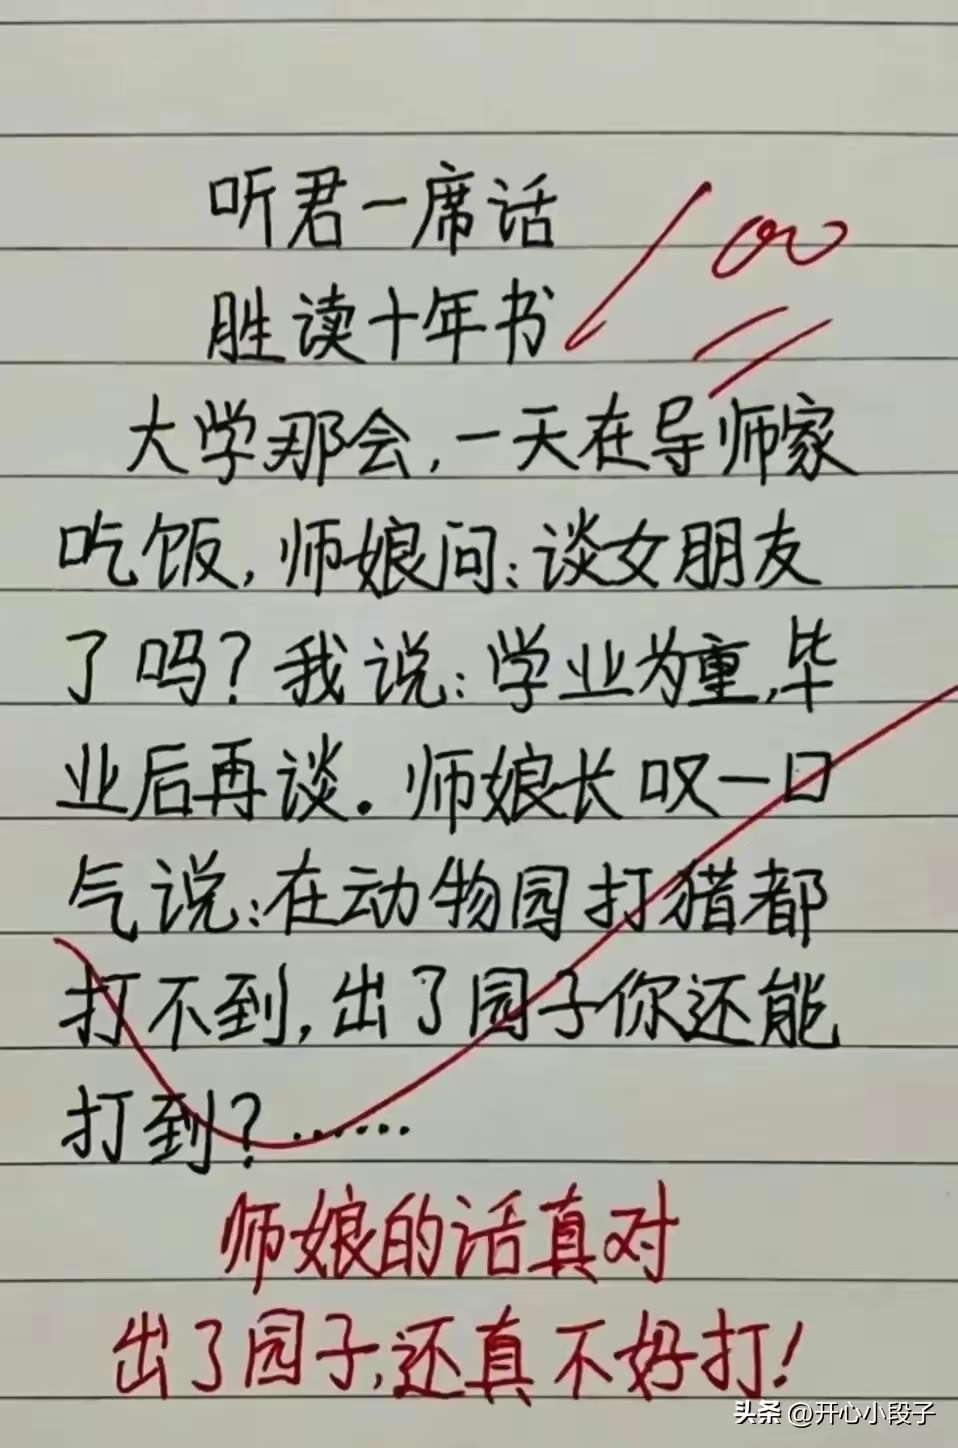 听君一席话
100
胜读十年书
大学那会,一天在导师家
吃饭,师娘问:谈女朋友
了吗?我说:学业为重,毕
业后再谈。师娘长叹一口
气说:在动物园打猎都
打不到,出了园子你还能
打到?……
师娘的话真对
出了园子,还真不好打!
头条 @开心小段子